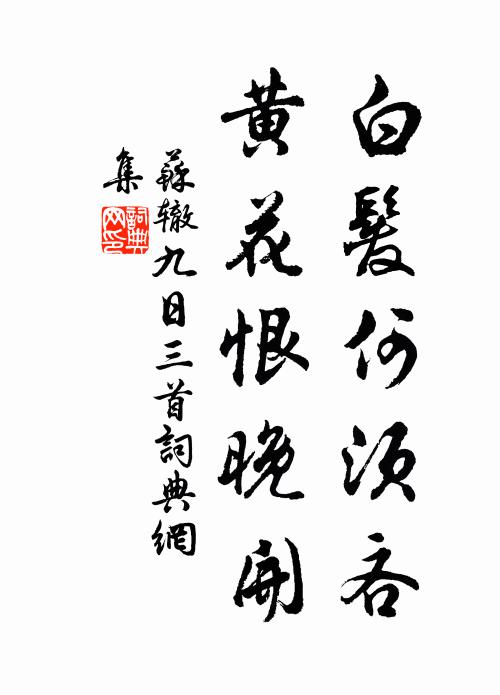 白髮何須吝
黃花恨晚開
蘇轍九日三首詞典網
集
詞典網印